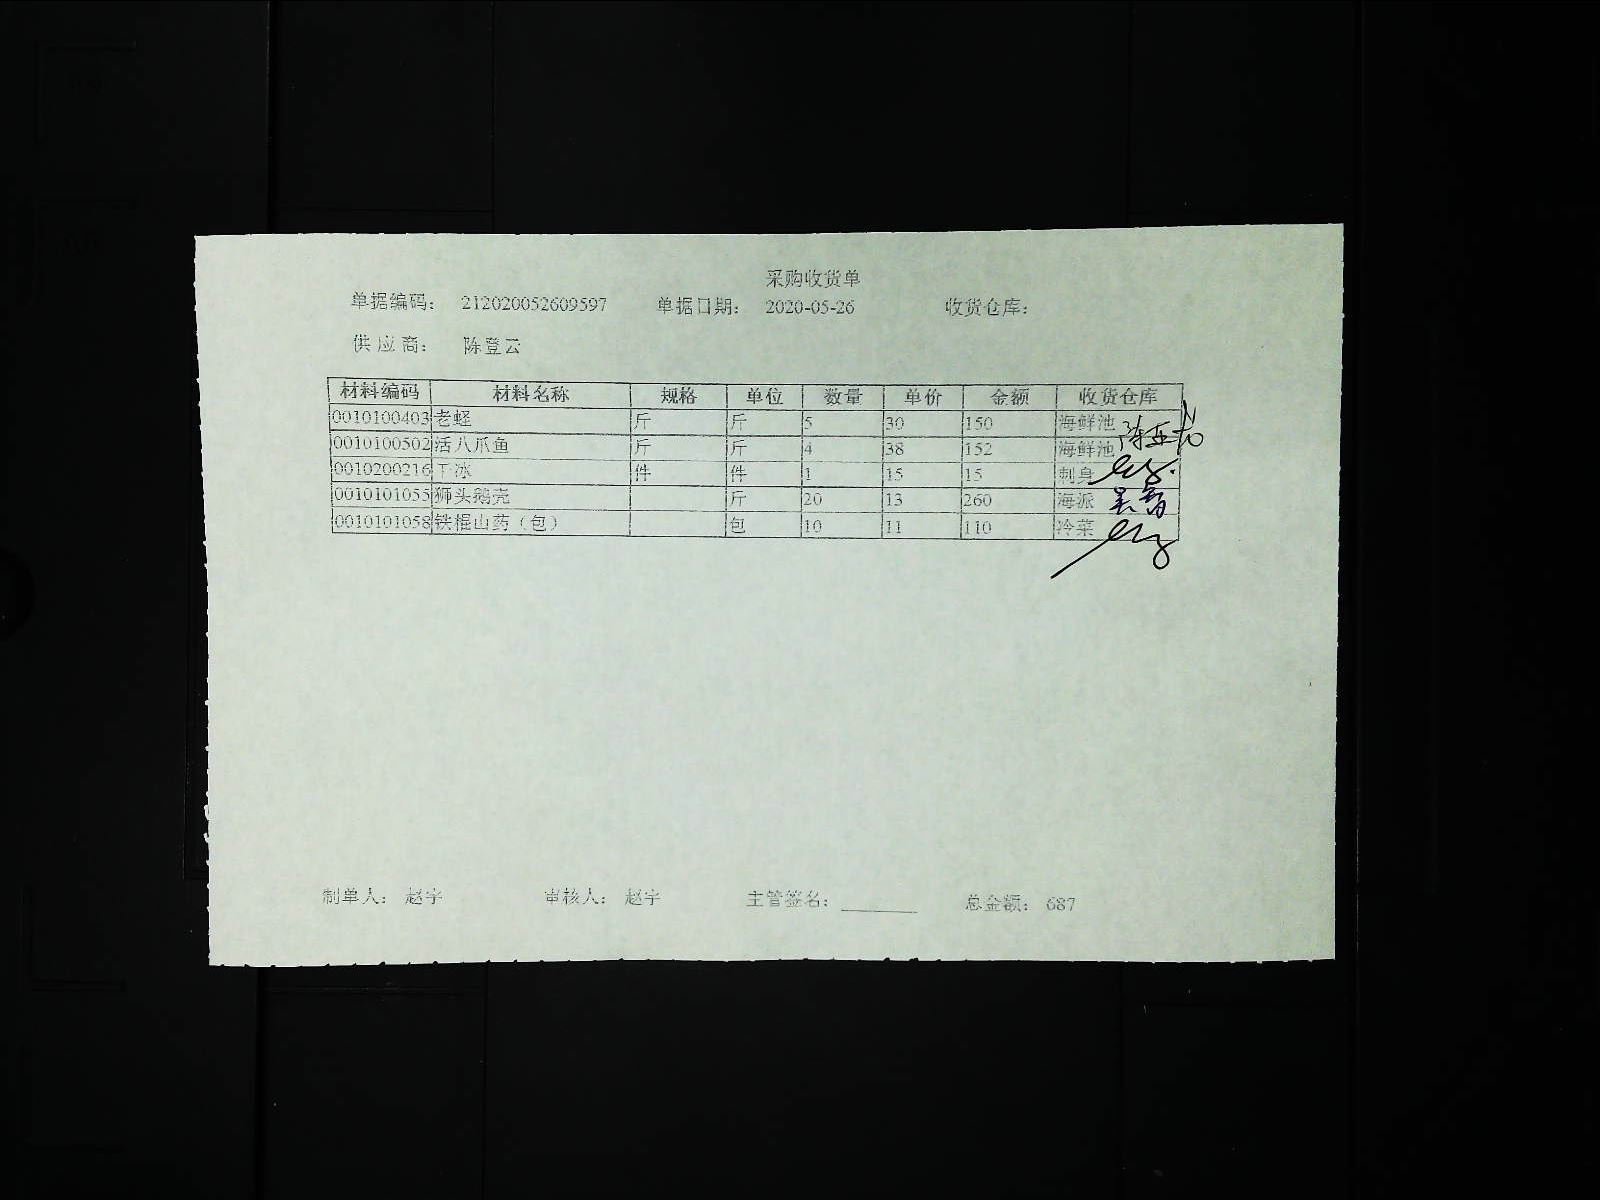 采购收货单
单据编码: 212020052609597 单据日期: 2020-05-26 收货仓库:
供应商: 陈登云
材料编码 材料名称 规格 单位 数量 单价 金额 收货仓库
0010100403 老蛏 斤 斤 5 30 150 海鲜池
0010100502 活八爪鱼 斤 斤 4 38 152 海鲜池
0010200216 干冰 件 件 1 15 15 刺身
0010101055 狮头鹅壳 斤 20 13 260 海派
0010101058 铁棍山药（包） 包 10 11 110 冷菜
制单人: 赵宇 审核人: 赵宇 主管签名: 总金额: 687